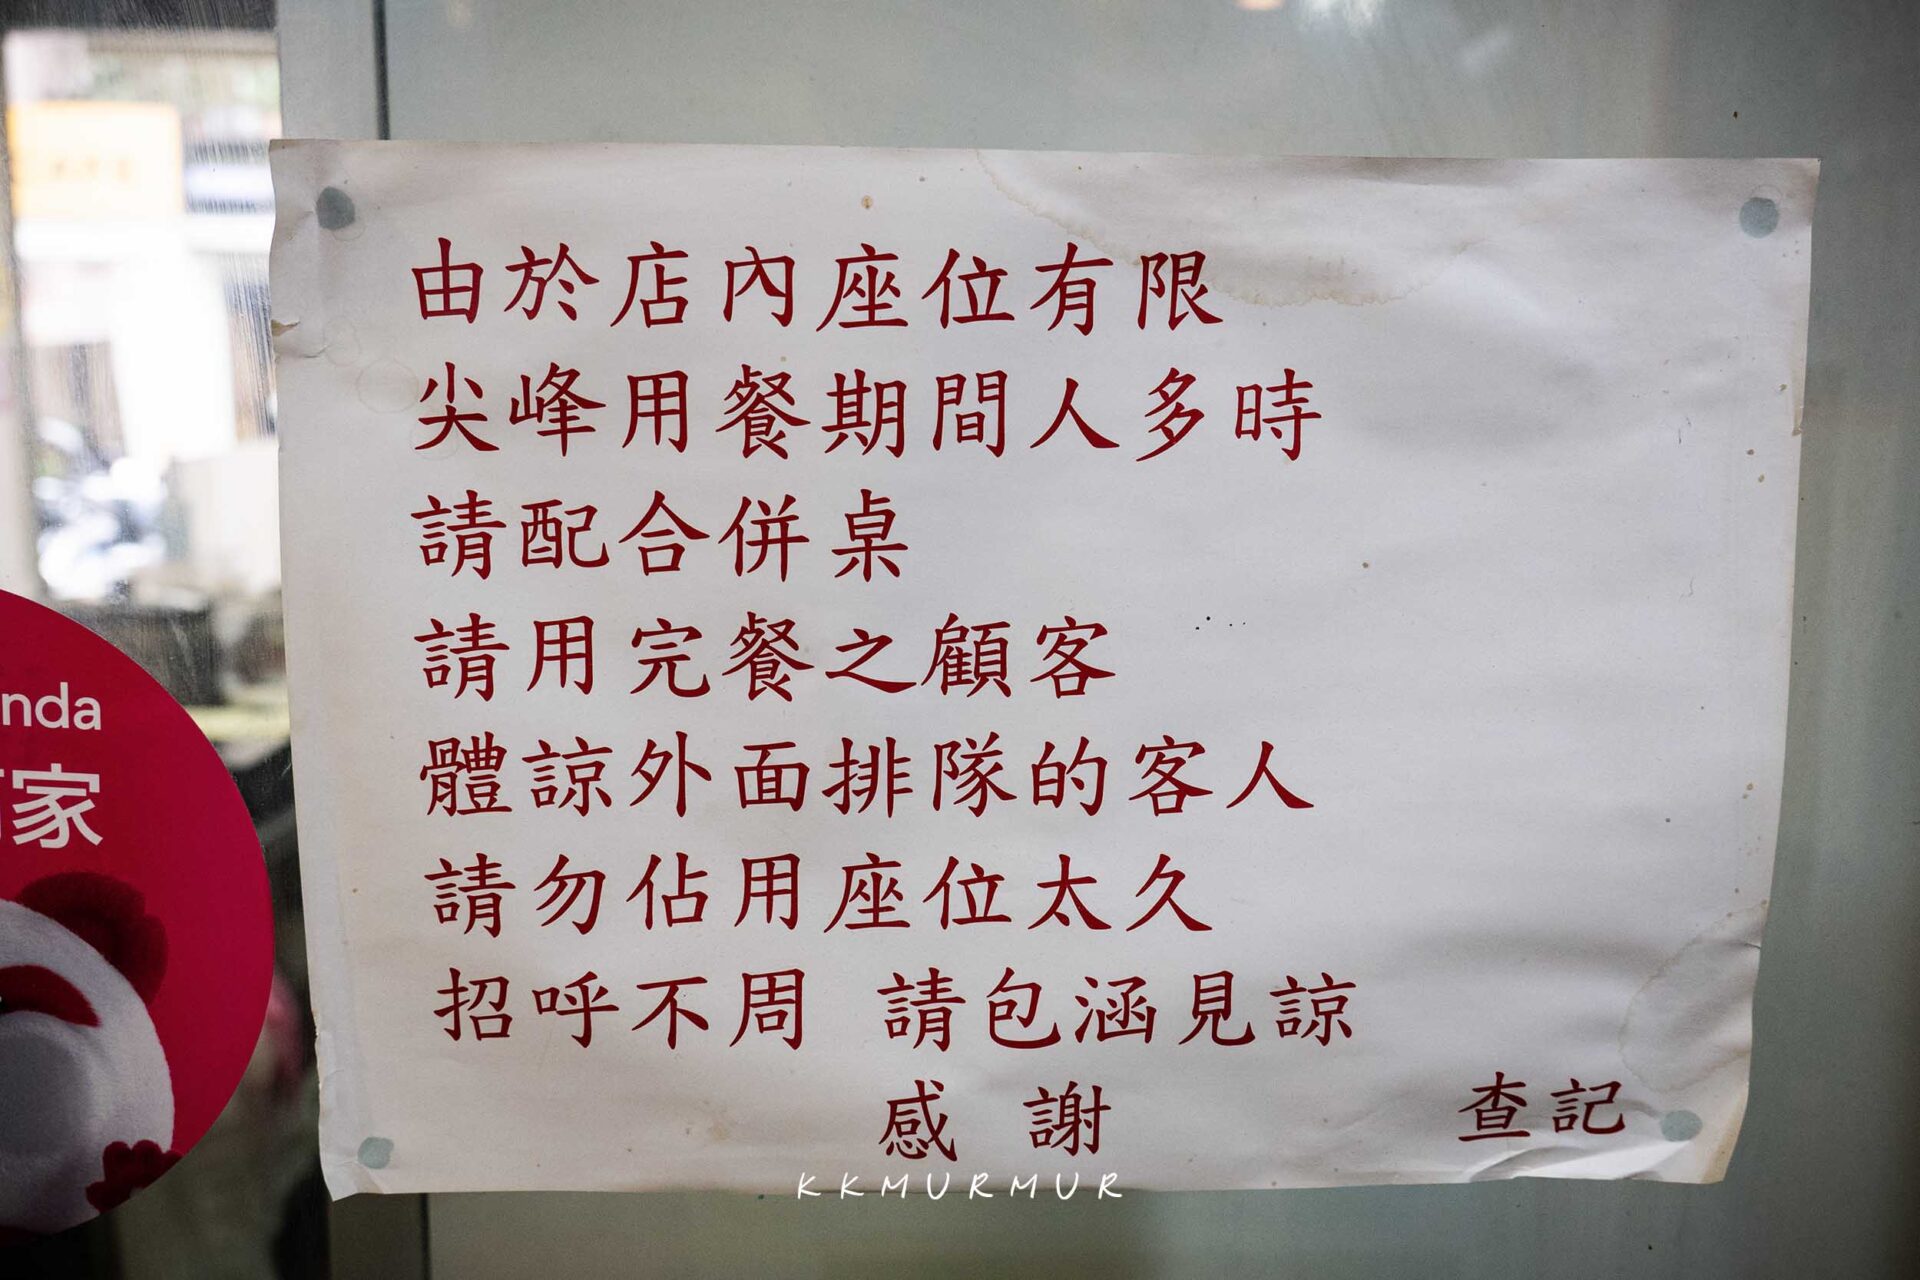 由於店內座位有限
尖峰用餐期間人多時
請配合併桌
請用完餐之顧客
體諒外面排隊的客人
請勿佔用座位太久
招呼不周 請包涵見諒
感謝
查記
nda
家
KKMURMUR